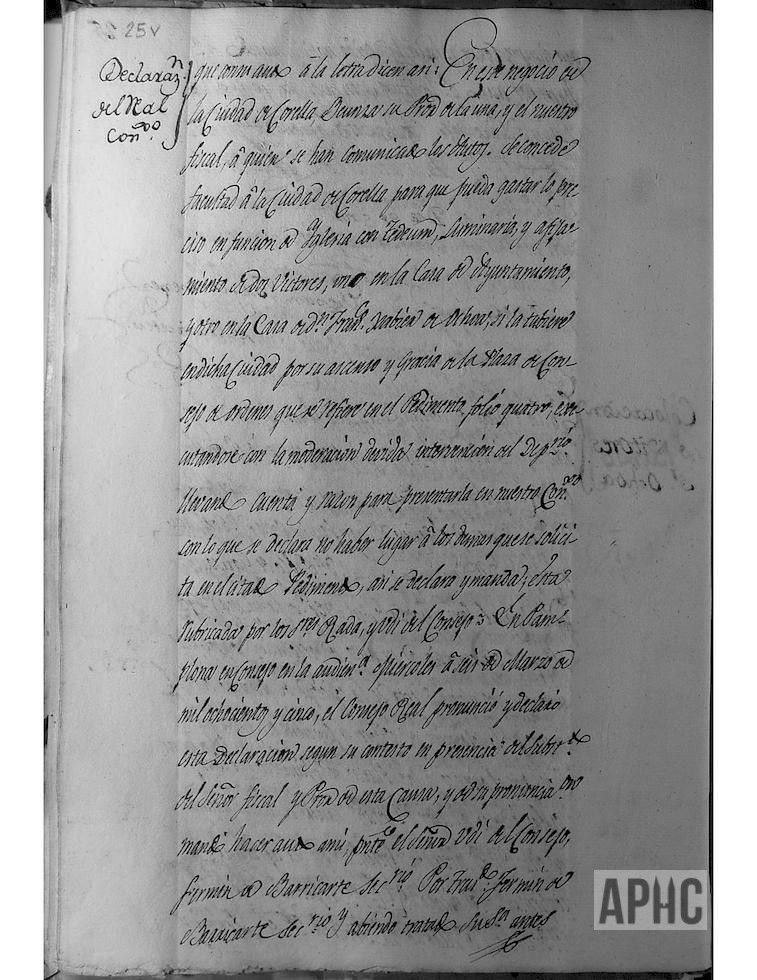 25v
Declaraz.n
del Real
Con.º
que con su auto â la letra dicen asi: En este negocio de
la Ciudad de Corella Deunza su Pror de la una, y el nuestro
fiscal, â quienes se han comunicado los Autos. Se concede
facultad â la Ciudad de Corella para que pueda gastar lo pre-
ciso en funcion de Yglesia con Tedeum, Luminaria, y afija-
miento de dos Vitores, uno en la Casa de Ayuntamiento,
y otro en la Casa de dn Franco Xabier de Ochoa, si la tubiere
en dicha Ciudad por su ascenso y Gracia de la Plaza de Con-
sejo de ordenes que se refiere en el Pedimento folio quatro, exe-
cutandose con la moderacion devida intervencion del Deprio
llevando cuenta y razon para presentarla en nuestro Con.º
con lo que se declara no haber lugar â los demas que se solici-
ta en el citado Pedimento, asi se declara y manda; esta
rubricada por los Sres Rada, y Vdi del Consejo = En Pam-
plona en Consejo en la audien.a Miercoles â seis de Marzo de
mil ochocientos y cinco, el Consejo Real pronunció y declaró
esta Declaracion segun su contesto en presencia del Substto
del Señor fiscal y Pror de esta Causa, y de su pronuncia.on
mandó hacer auto a mi, pnte el Señor Vdi del Consejo,
fermin de Barricarte Secrio Por trasdo Fermin de
Barricarte Secrio Y abiendo tratado Su Sa antes
APHC